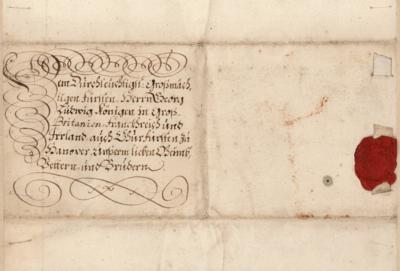 Dem Durchleuchtigit: Großmäch,
tigen Fürsten, Herrn Georg
Ludwig Königen in Groß
Britanien, Franckreich und
Irrland, auch Churfürsten zu
Hanover, Unserm lieben Oheimb,
Vettern, und Brüdern